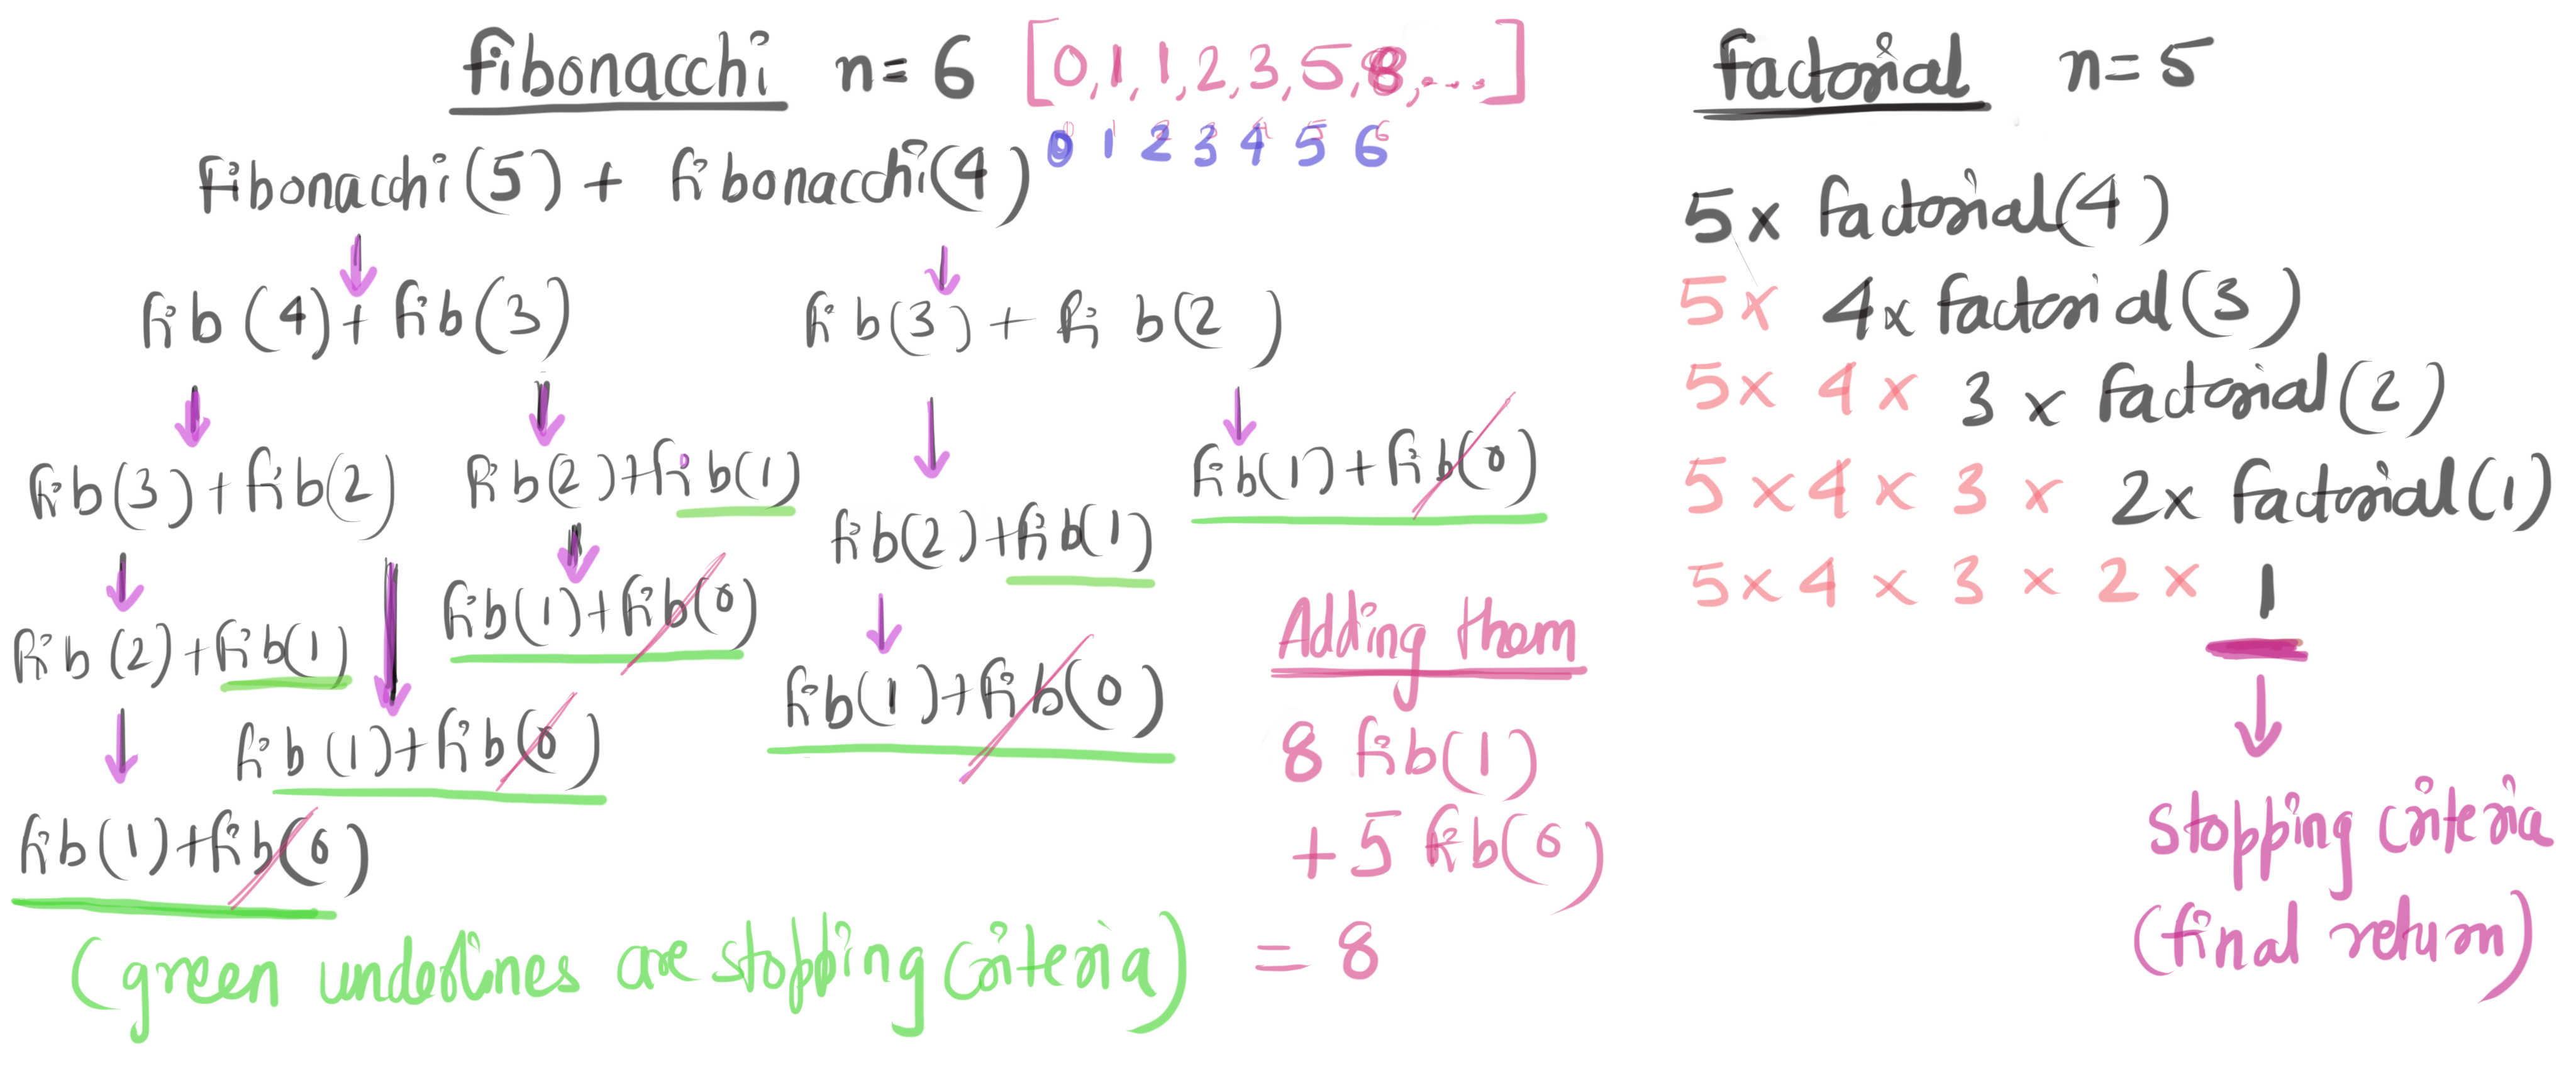 fibonacchi n=6 [0,1,1,2,3,5,8,...]
0 1 2 3 4 5 6
fibonacchi(5) + fibonacchi(4)
fib(4)+fib(3)
fib(3)+fib(2)
fib(3)+fib(2)
fib(2)+fib(1)
fib(2)+fib(1)
fib(1)+fib(0)
fib(2)+fib(1)
fib(1)+fib(0)
fib(1)+fib(0)
fib(1)+fib(0)
fib(1)+fib(0)
(green underlines are stopping criteria)
Adding them
8 fib(1)
+5 fib(0)
= 8
factorial n=5
5x factorial(4)
5x 4x factorial(3)
5x 4x 3x factorial(2)
5x4x3x 2x factorial(1)
5x4x3x2x 1
stopping criteria
(final return)